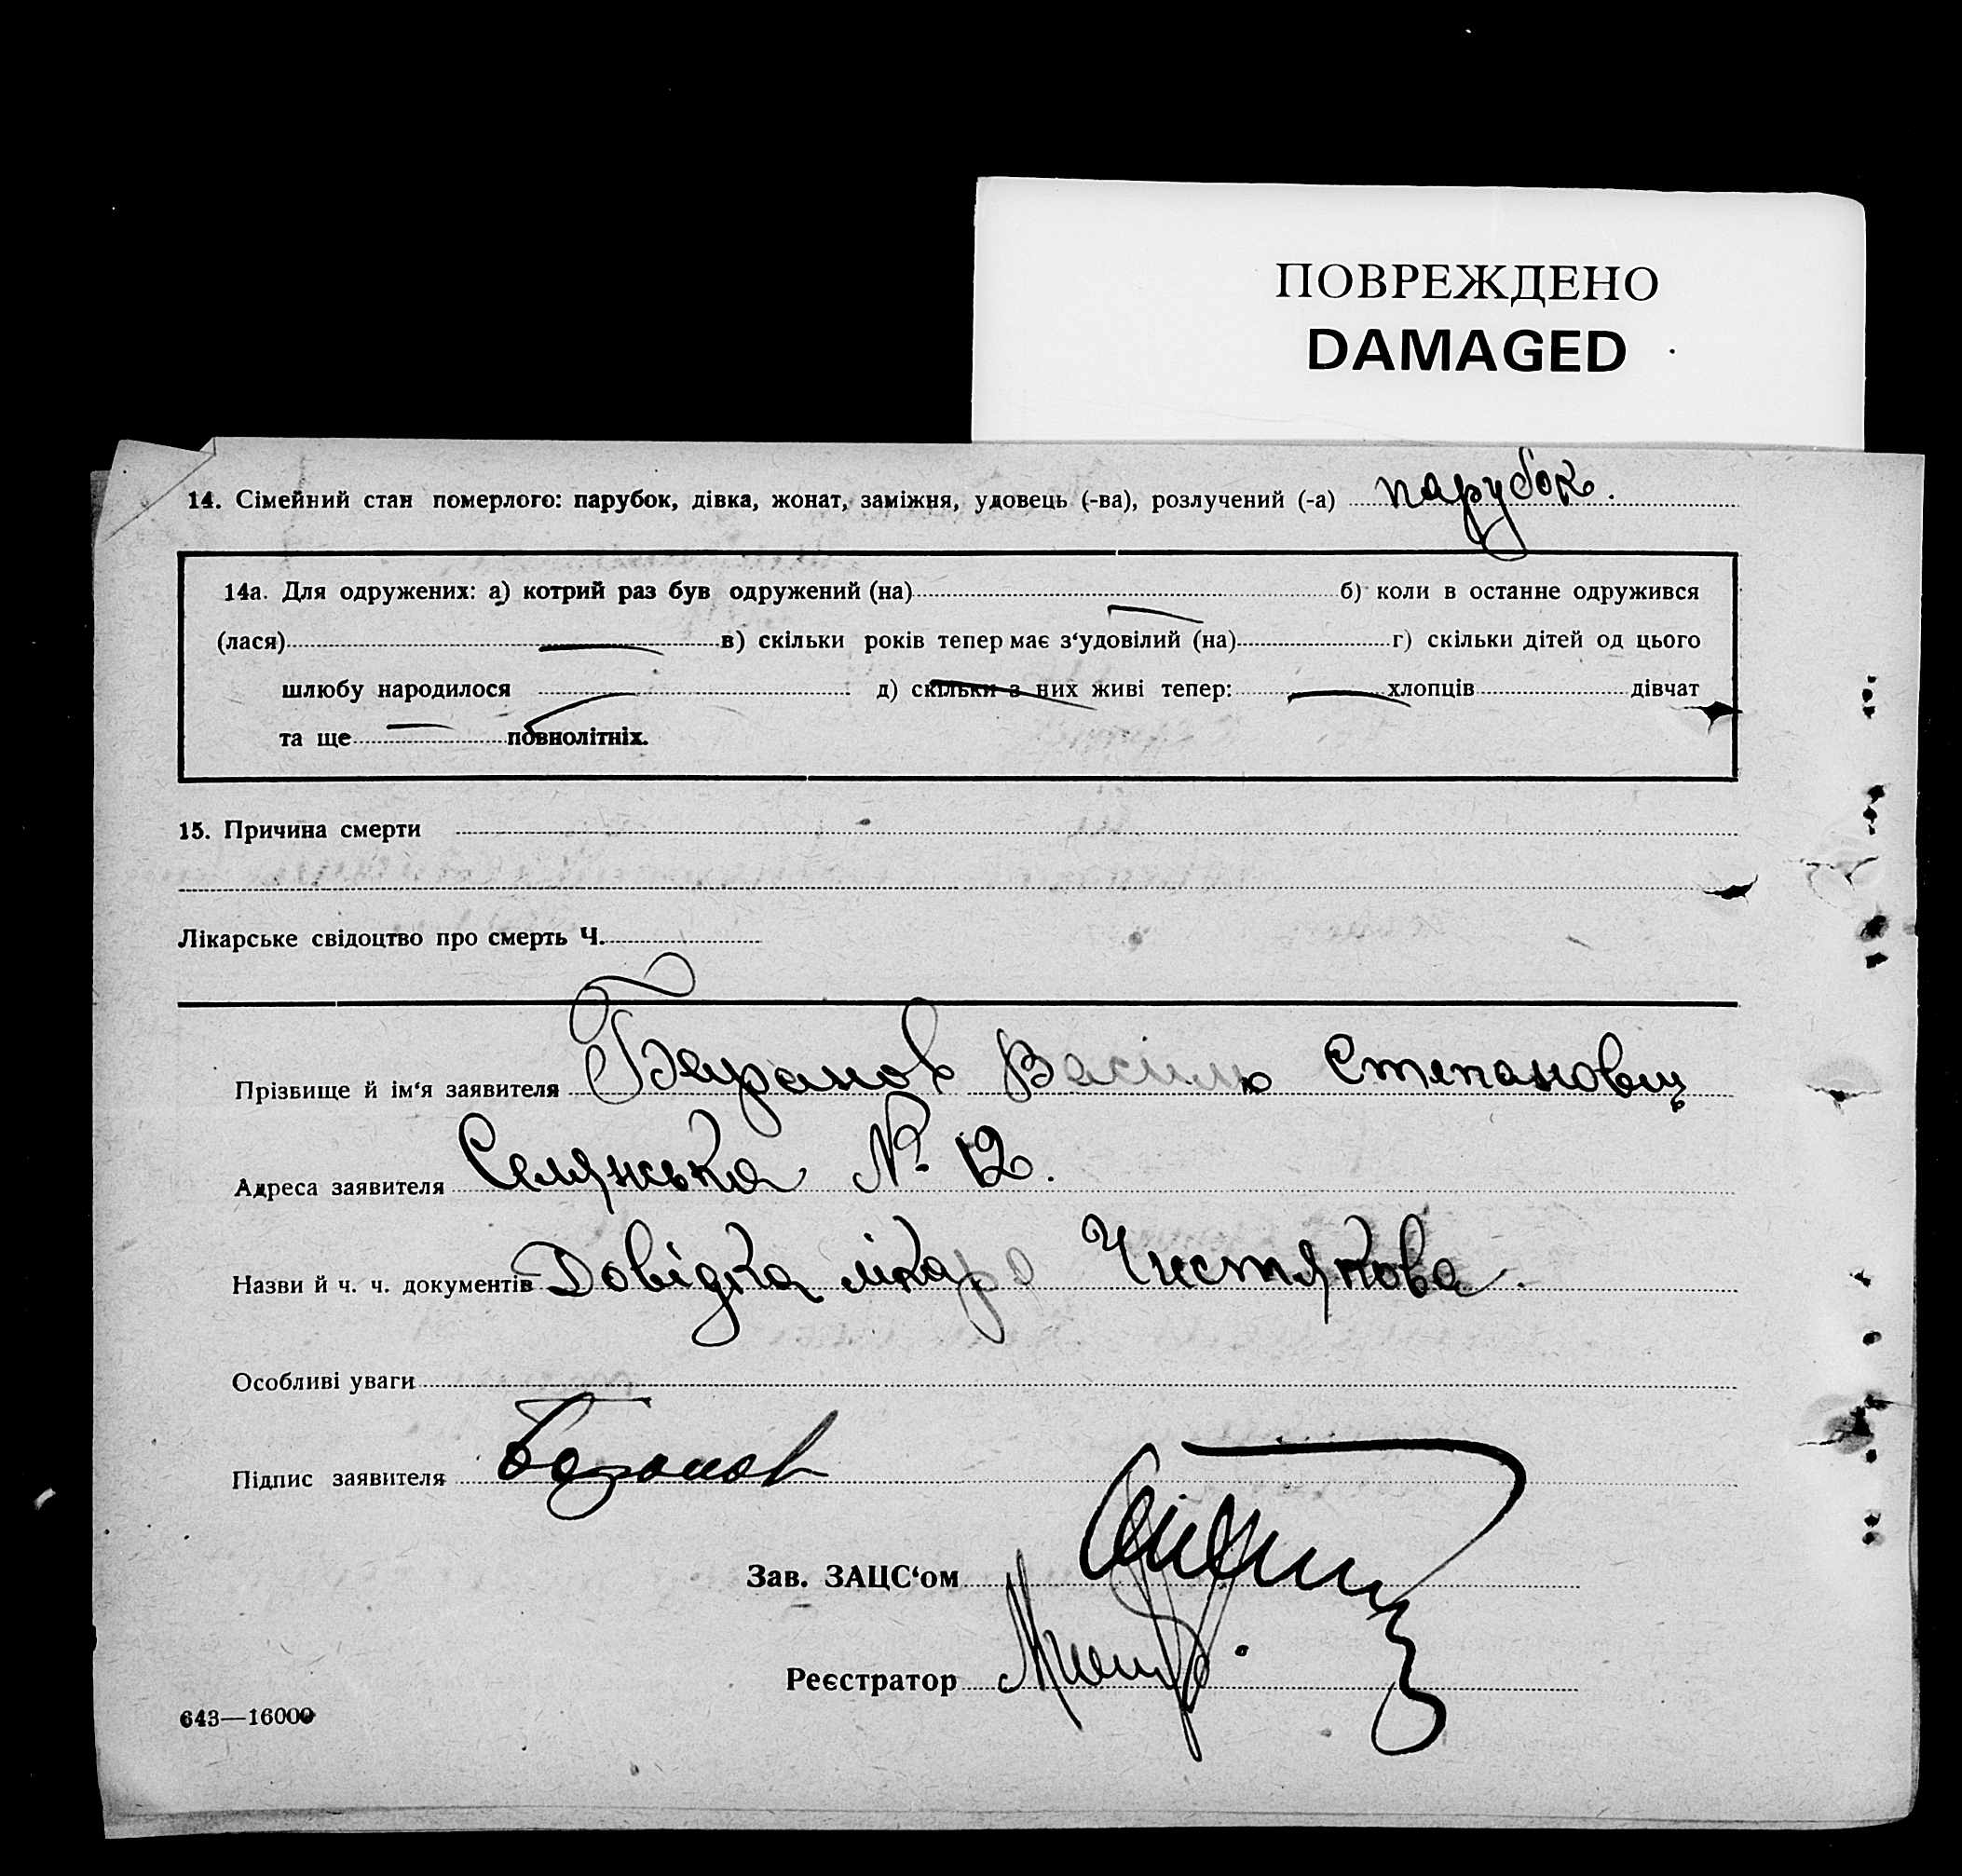 ПОВРЕЖДЕНО
DAMAGED
14. Сімейний стан померлого: парубок, дівка, жонат, заміжня, удовець (-ва), розлучений (-а) парубок.
14а. Для одружених: а) котрий раз був одружений (на) б) коли в останне одружився
(лася) в) скільки років тепер має з‘удовілий (на) г) скільки дітей од цього
шлюбу народилося д) скільки з них живі тепер: хлопців дівчат
та ще повнолітніх.
15. Причина смерти
Лікарське свідоцтво про смерть Ч.
Прізвище й ім‘я заявителя Баранов Василь Степанович
Адреса заявителя Селянська № 12.
Назви й ч. ч. документів Довідка лікаря Чистякова.
Особливі уваги
Підпис заявителя Баранов
Зав. ЗАЦС‘ом
Реєстратор
643—16000